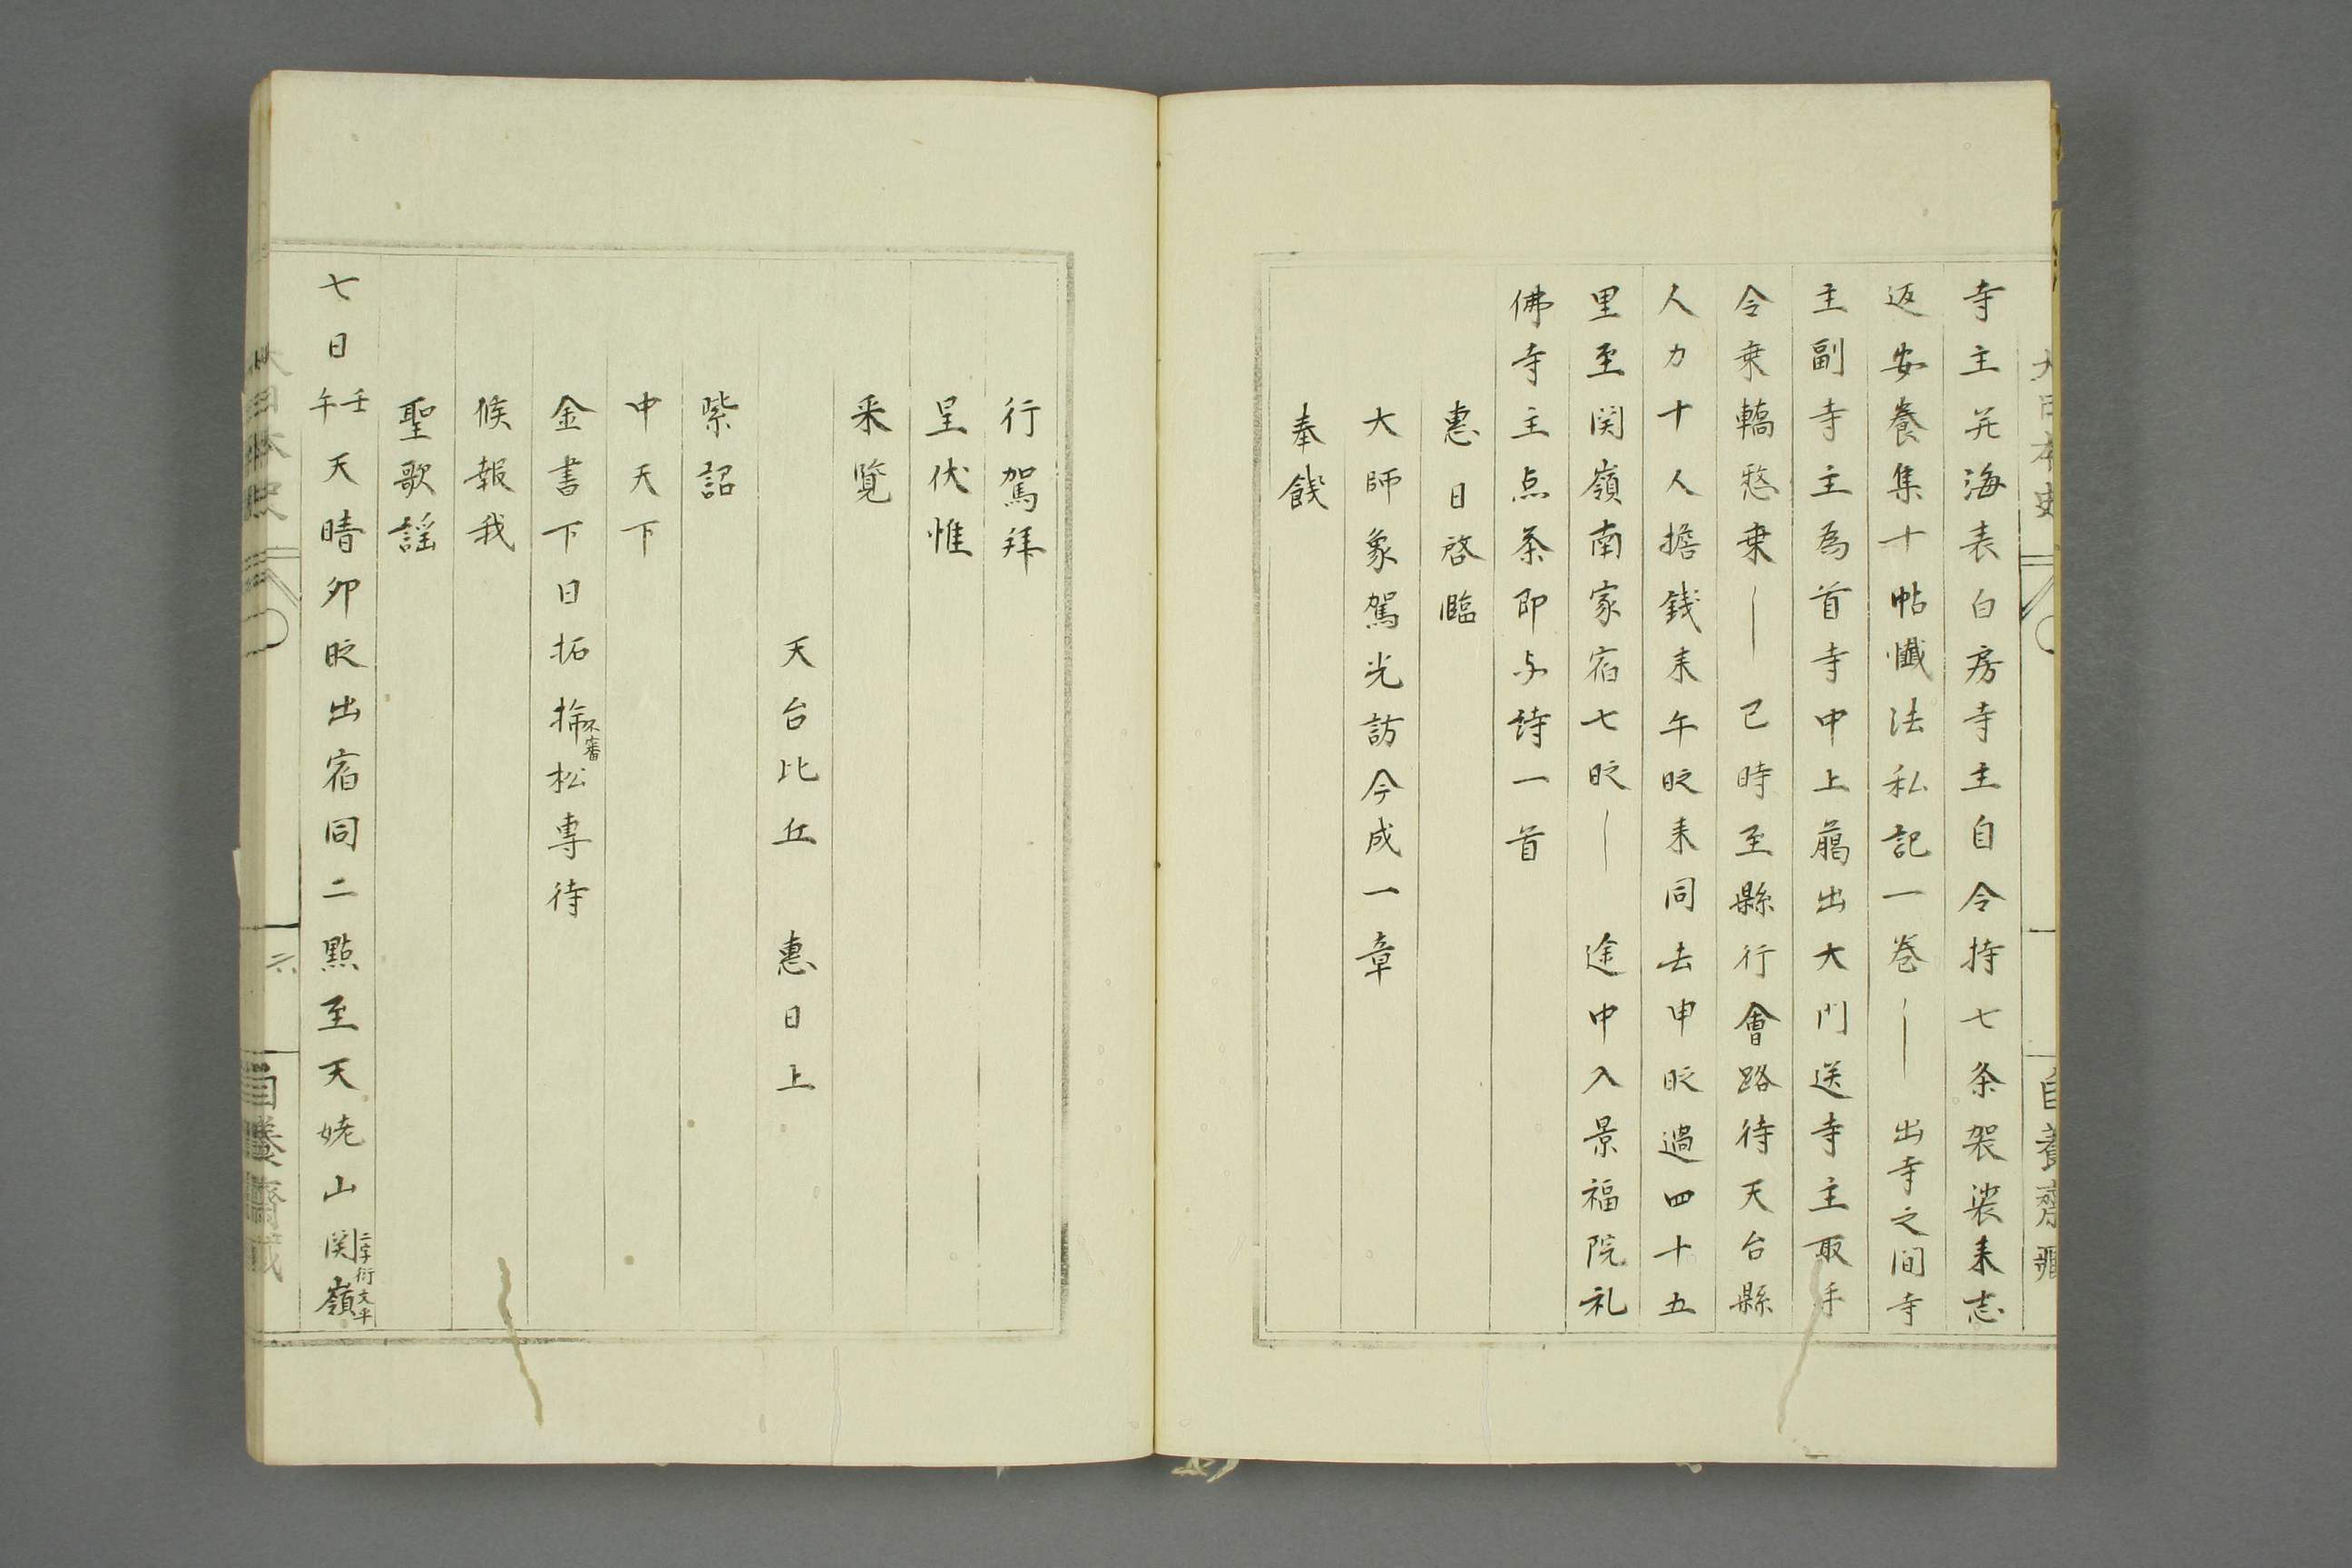 寺主并海表白房寺主自令持七条袈裟来志
返安養集十帖懺法私記一巻――出寺之间寺
主副寺主為首寺中上﨟出大門送寺主取手
令乗轎愁乗――已時至縣行會路待天台縣
人力十人擔銭来午時来同去申時過四十五
里至関嶺南家宿七時――途中入景福院礼
佛寺主点茶即与詩一首
惠日啓臨
大師象駕光訪今成一章
奉餞
行駕拜
呈伏惟
采覽
天台比丘　惠日上
紫詔
中天下
金書下日拓掄不審松專待
候報我
聖歌謡
七日壬午天晴卯時出宿同二點至天姥山関嶺二字衍文乎
六
自養齋藏